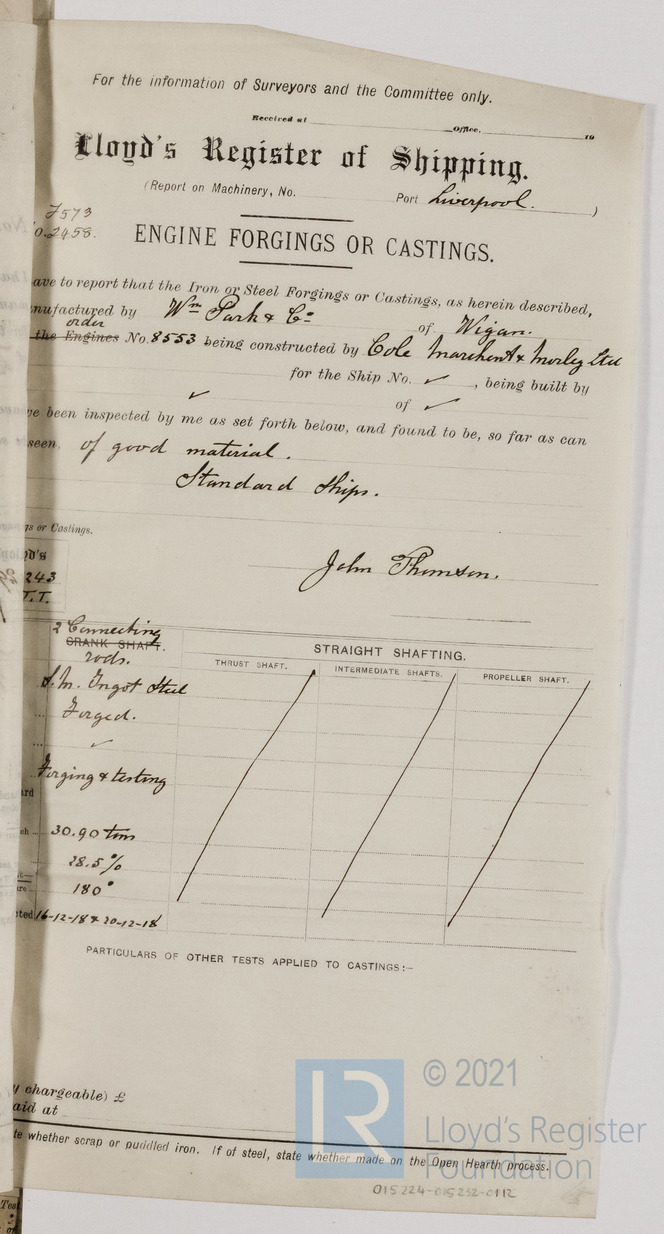 For the information of Surveyors and the Committee only.
Received at Office, 19
Lloyd's Register of Shipping.
(Report on Machinery, No. Port Liverpool.)
7573
o. 2458.
ENGINE FORGINGS OR CASTINGS.
ave to report that the Iron or Steel Forgings or Castings, as herein described,
nufactured by Wm Park & Co of Wigan.
order
the Engines No. 8553 being constructed by Cole Marchent & Morley Ltd
for the Ship No. ✓, being built by
✓ of ✓
ve been inspected by me as set forth below, and found to be, so far as can
seen, of good material.
Standard Ships.
gs or Castings.
yd's
243
T.T.
John Thomson.
2 Connecting
CRANK SHAFT.
rods.
STRAIGHT SHAFTING.
THRUST SHAFT. INTERMEDIATE SHAFTS. PROPELLER SHAFT.
S.M. Ingot Steel
Forged.
✓
Forging & testing
ard
ch 30.90 tons
28.5%
ure 180°
cted 16-12-18 & 20-12-18
PARTICULARS OF OTHER TESTS APPLIED TO CASTINGS:—
y chargeable) £
aid at
te whether scrap or puddled iron. If of steel, state whether made on the Open Hearth process.
LR
© 2021
Lloyd's Register
Foundation
015224-015232-0112